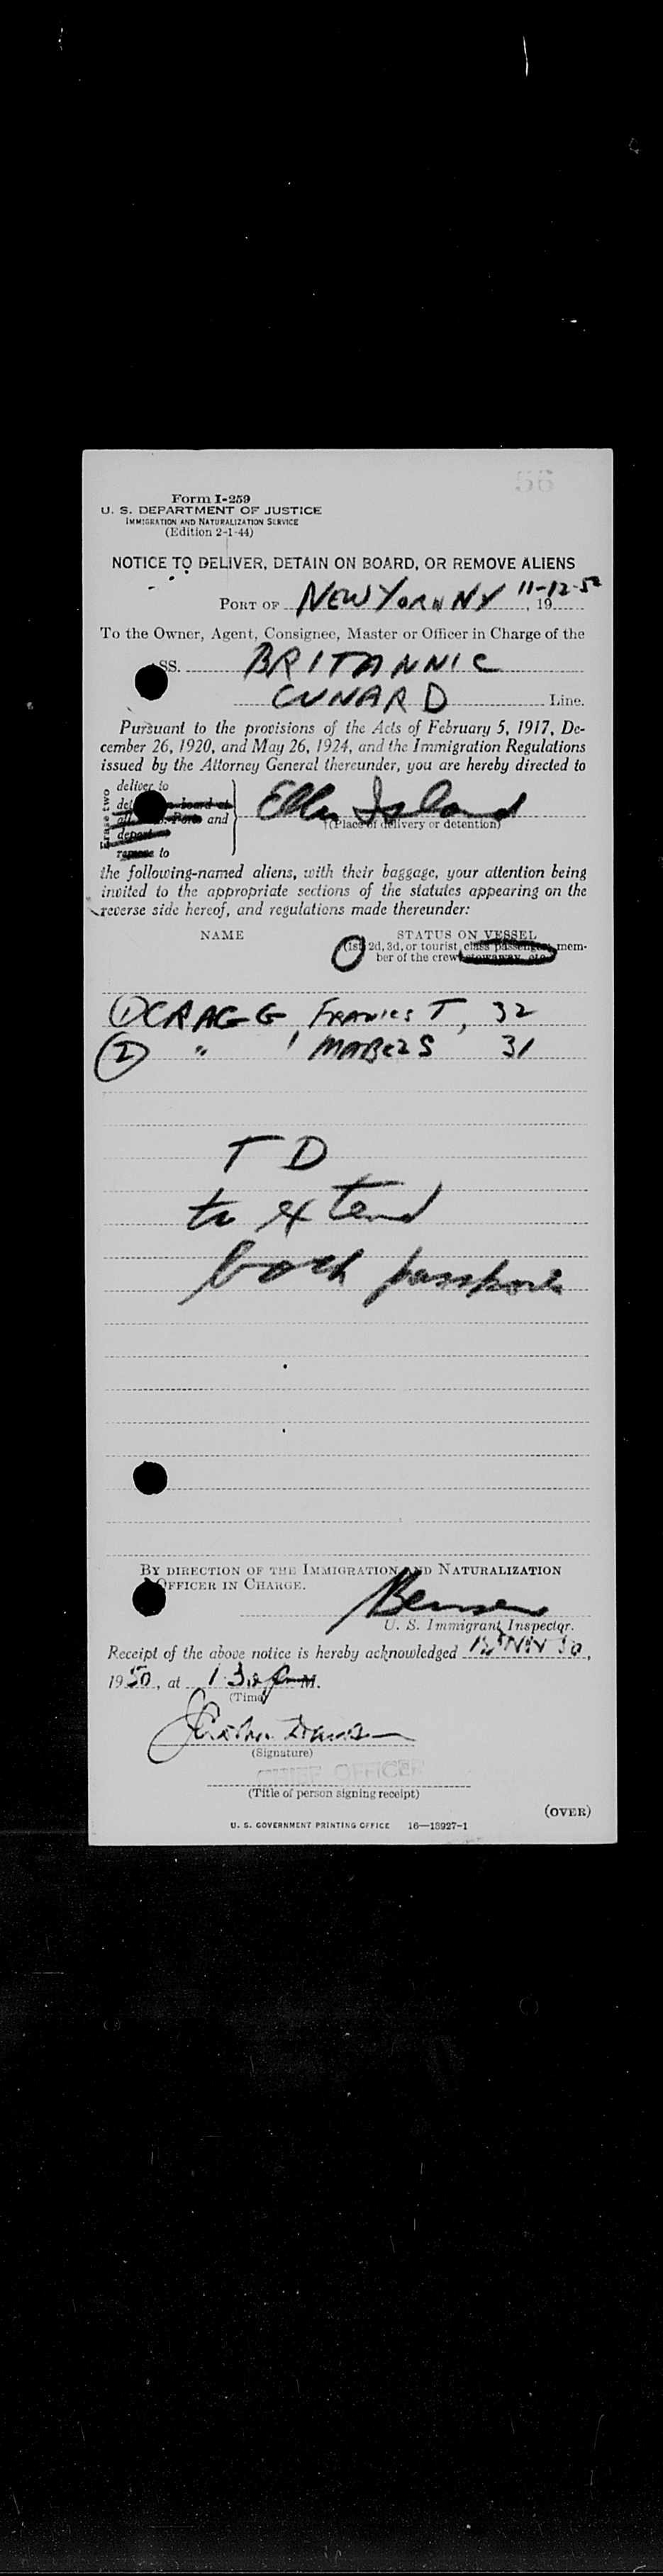 66
Form I-259
U. S. DEPARTMENT OF JUSTICE
IMMIGRATION AND NATURALIZATION SERVICE
(Edition 2-1-44)
NOTICE TO DELIVER, DETAIN ON BOARD, OR REMOVE ALIENS
PORT OF NEW YORK NY 11-12-50, 19
To the Owner, Agent, Consignee, Master or Officer in Charge of the
SS. BRITANNIC
CUNARD Line.
Pursuant to the provisions of the Acts of February 5, 1917, De-
cember 26, 1920, and May 26, 1924, and the Immigration Regulations
issued by the Attorney General thereunder, you are hereby directed to
Erase two
deliver to
board at
Ports and
Ellis Island
(Place of delivery or detention)
remove to
the following-named aliens, with their baggage, your attention being
invited to the appropriate sections of the statutes appearing on the
reverse side hereof, and regulations made thereunder:
NAME STATUS ON VESSEL
(1st, 2d, 3d, or tourist class passenger, mem-
ber of the crew, stowaway, etc.)
(1) CRAGG, FRANCES T, 32
(2) " , MABEL S 31
T D
to extend
both passports
BY DIRECTION OF THE IMMIGRATION AND NATURALIZATION
OFFICER IN CHARGE.
U. S. Immigrant Inspector.
Receipt of the above notice is hereby acknowledged 12 Nov 50,
1950, at 1 30 P M.
(Time)
(Signature)
CHIEF OFFICER
(Title of person signing receipt)
(OVER)
U. S. GOVERNMENT PRINTING OFFICE 16—18927-1